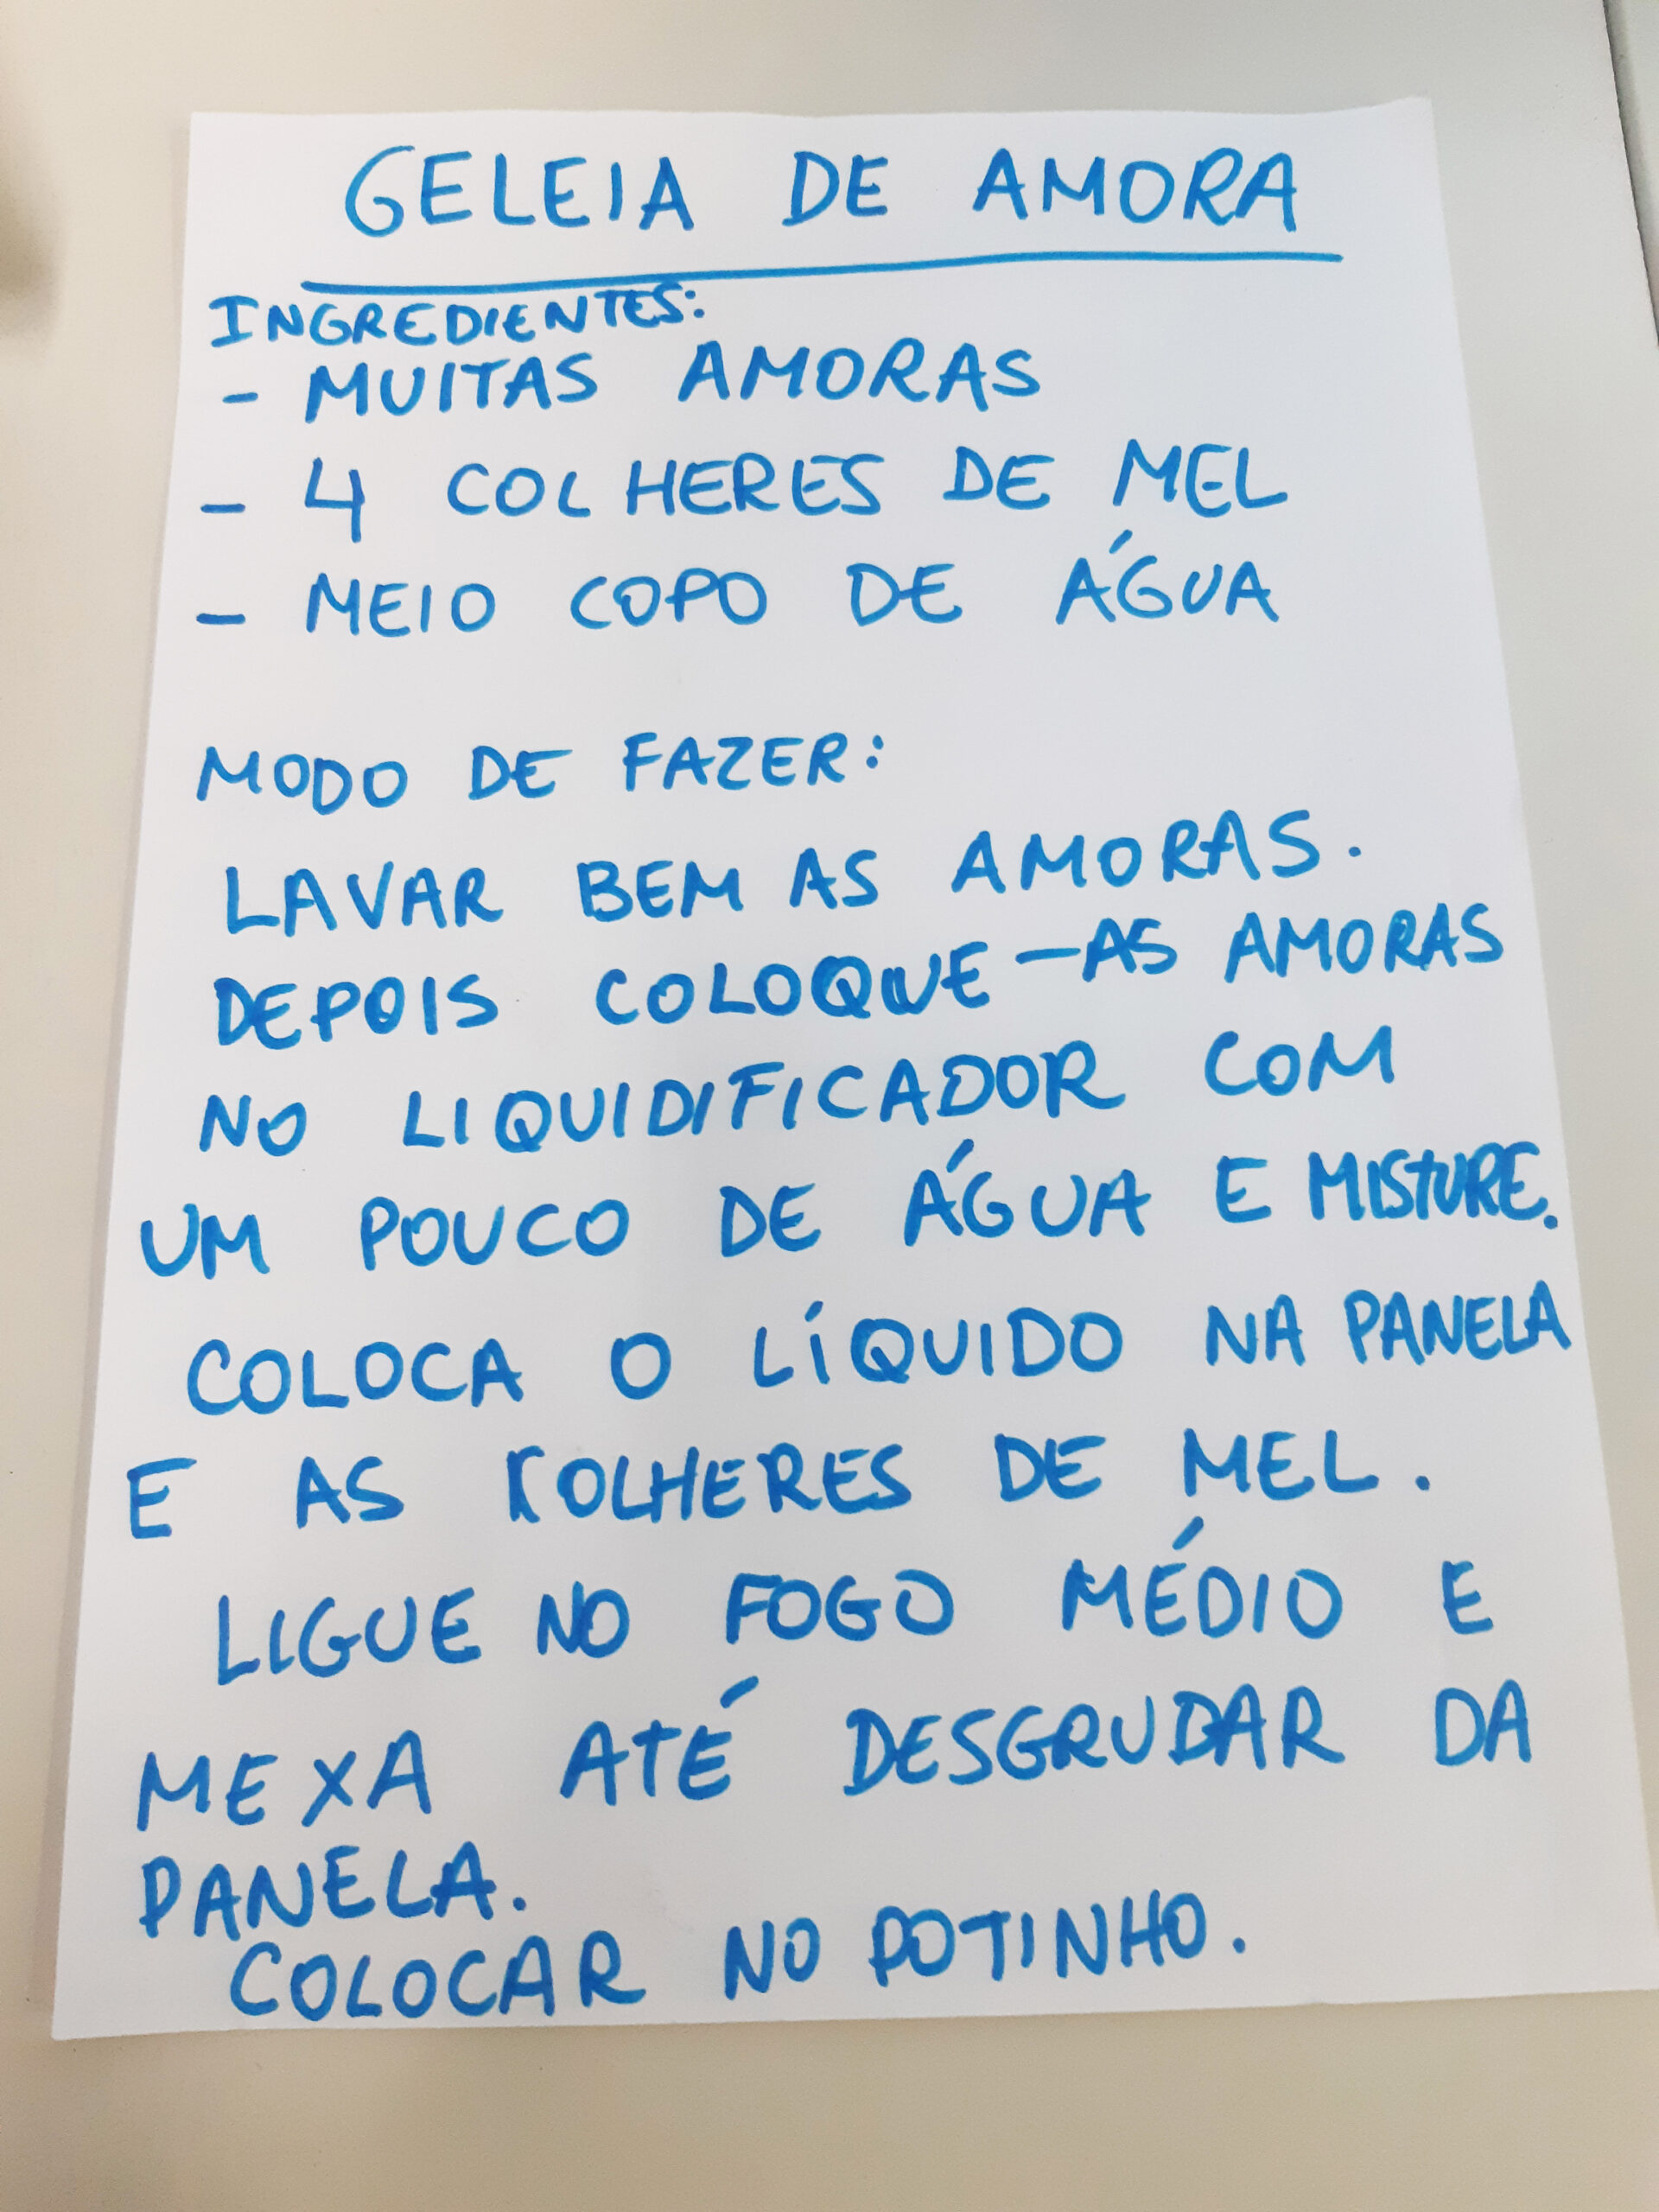 GELEIA DE AMORA
INGREDIENTES:
- MUITAS AMORAS
- 4 COLHERES DE MEL
- MEIO COPO DE ÁGUA
MODO DE FAZER:
LAVAR BEM AS AMORAS.
DEPOIS COLOQUE-AS AMORAS
NO LIQUIDIFICADOR COM
UM POUCO DE ÁGUA E MISTURE.
COLOCA O LÍQUIDO NA PANELA
E AS COLHERES DE MEL.
LIGUE NO FOGO MÉDIO E
MEXA ATÉ DESGRUDAR DA
PANELA.
COLOCAR NO POTINHO.